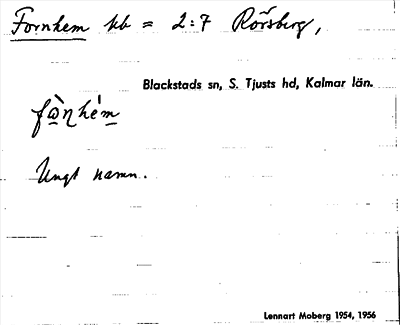 Fornhem kb = 2:7 Rörsberg,
Blackstads sn, S. Tjusts hd, Kalmar län.
Ungt namn.
Lennart Moberg 1954, 1956